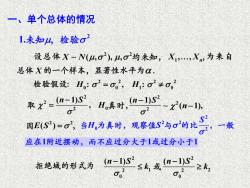 一、单个总体的情况
1.未知μ, 检验σ²
设总体 X ~ N(μ,σ²), μ,σ²均未知, X₁,…,Xₙ, 为 来 自
总体 X 的一个样本，显著性水平为α.
检验假设: H₀: σ² = σ₀², H₁: σ² ≠ σ₀²
取 χ² = (n−1)S²/σ², H₀真时, (n−1)S²/σ₀² ~ χ²(n−1),
因E(S²) = σ², 当H₀为真时，观察值S²与σ²的比 S²/σ², 一般
应在1附近摆动，而不应过分大于1或过分小于1
拒绝域的形式为 (n−1)S²/σ₀² ≤ k₁ 或 (n−1)S²/σ₀² ≥ k₂